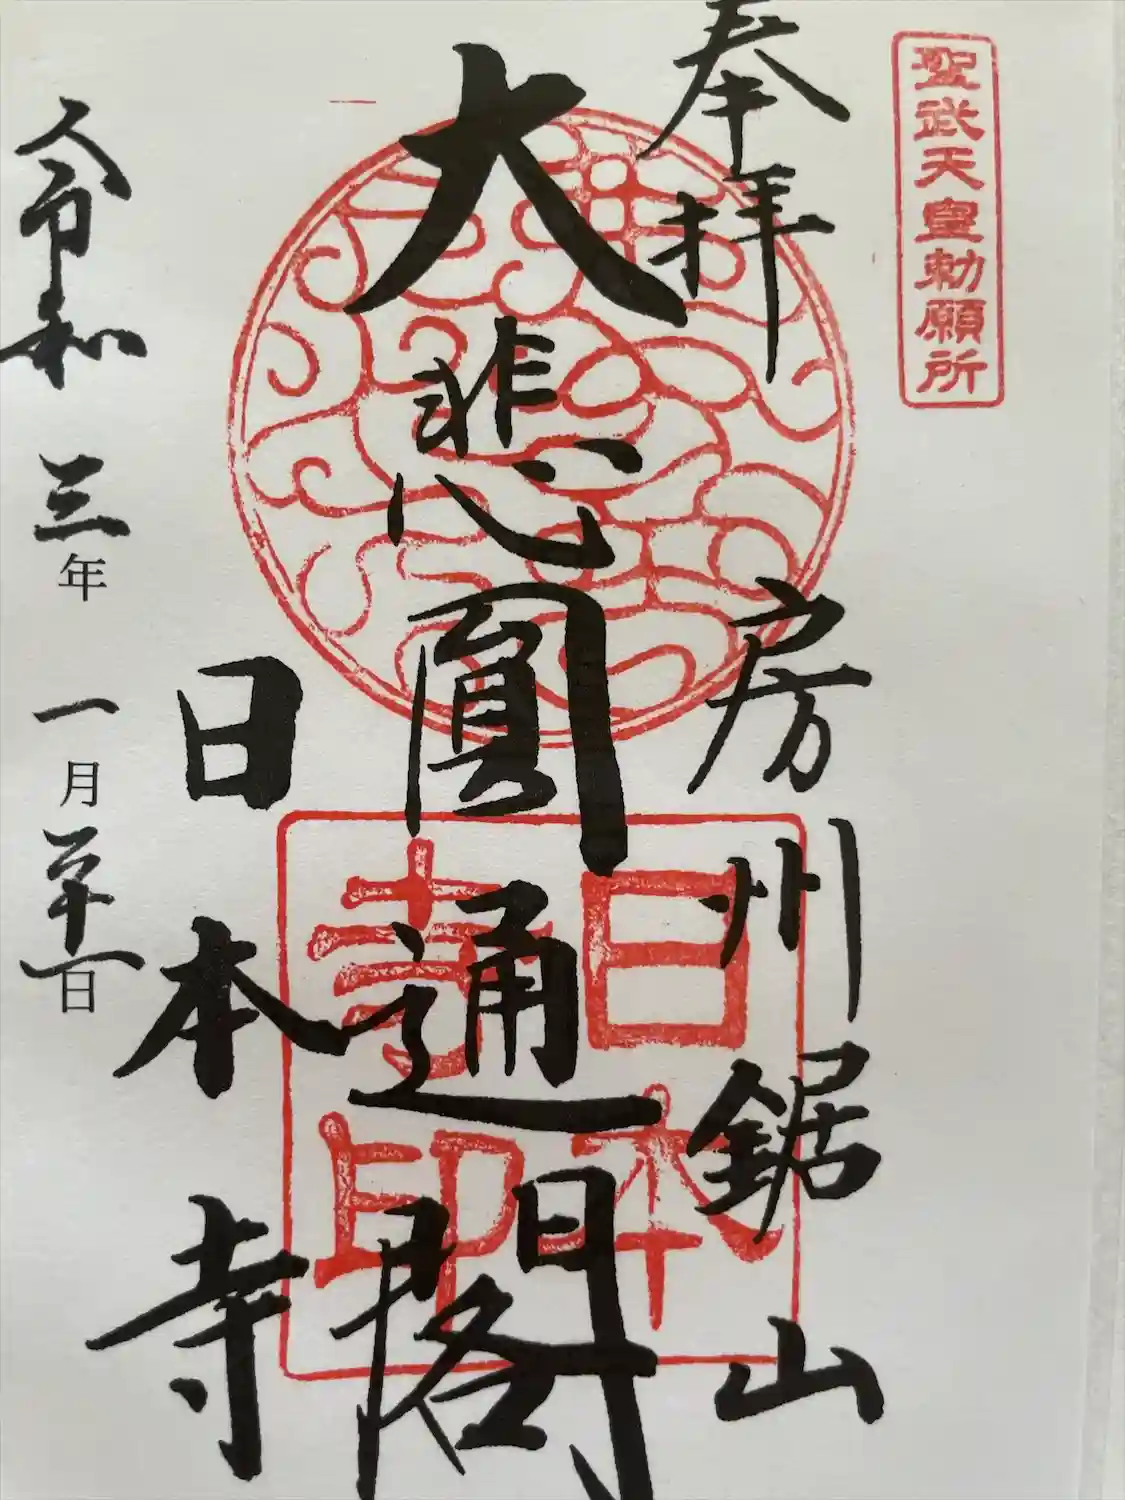 聖武天皇勅願所
奉拝
房州鋸山
大悲圓通閣
日本
寺印
日本寺
令和三年一月日